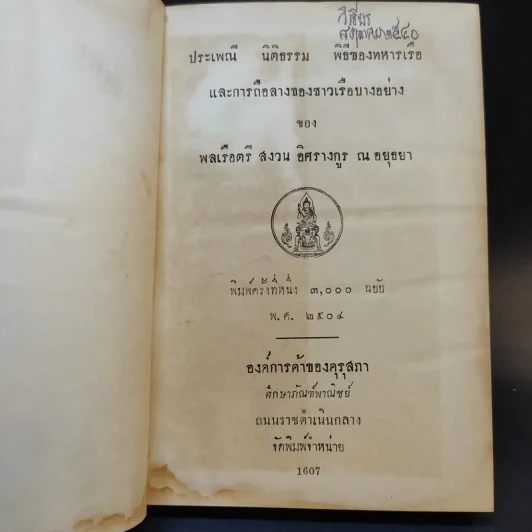 ประเพณี นิติธรรม พิธีของทหารเรือ
และการถือลางของชาวเรือบางอย่าง
ของ
พลเรือตรี สงวน อิศรางกูร ณ อยุธยา
พิมพ์ครั้งที่หนึ่ง ๓,๐๐๐ ฉบับ
พ.ศ. ๒๕๐๔
องค์การค้าของคุรุสภา
ศึกษาภัณฑ์พาณิชย์
ถนนราชดำเนินกลาง
จัดพิมพ์จำหน่าย
1607